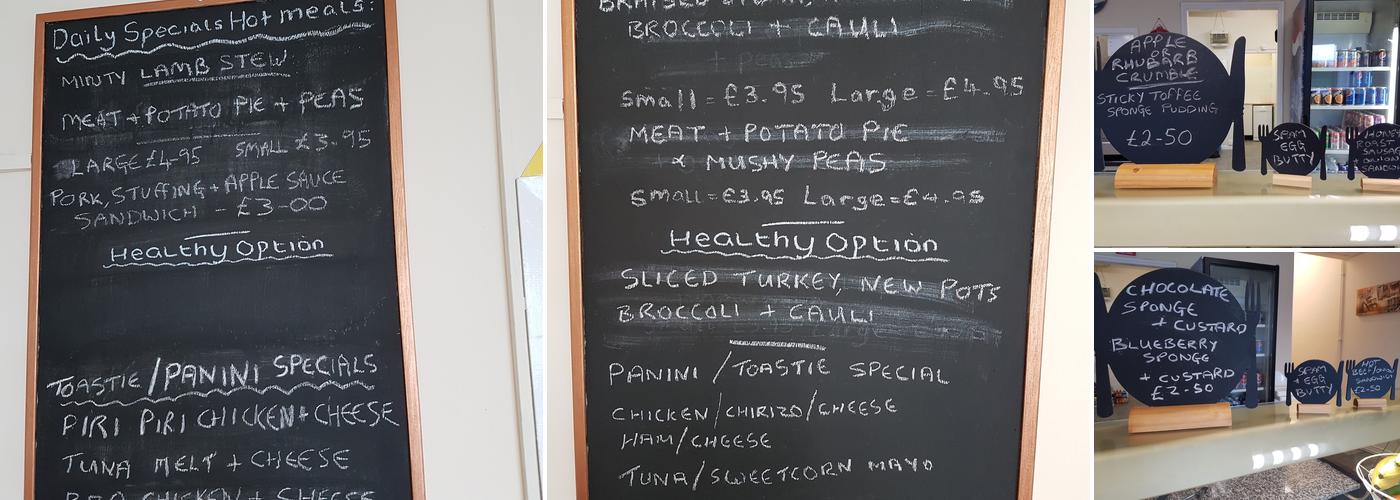 Daily Specials Hot meals:
MINTY LAMB STEW
MEAT + POTATO PIE + PEAS
LARGE £4-95 SMALL £3.95
PORK, STUFFING + APPLE SAUCE
SANDWICH - £3-00
Healthy Option
TOASTIE/PANINI SPECIALS
PIRI PIRI CHICKEN + CHEESE
TUNA MELT + CHEESE
BBQ CHICKEN + CHEESE
BROCCOLI + CAULI
+ peas
Small = £3.95 Large = £4.95
MEAT + POTATO PIE
+ MUSHY PEAS
Small = £3.95 Large = £4.95
Healthy Option
SLICED TURKEY, NEW POTS
BROCCOLI + CAULI
PANINI/TOASTIE SPECIAL
CHICKEN/CHIRIZO/CHEESE
HAM/CHEESE
TUNA/SWEETCORN MAYO
APPLE
OR
RHUBARB
CRUMBLE
STICKY TOFFEE
SPONGE PUDDING
£2-50
SPAM
EGG
BUTTY
ROAST
CHOCOLATE
SPONGE
+ CUSTARD
BLUEBERRY
SPONGE
+ CUSTARD
£2-50
SPAM
+ EGG
BUTTY
HOT
£2-50